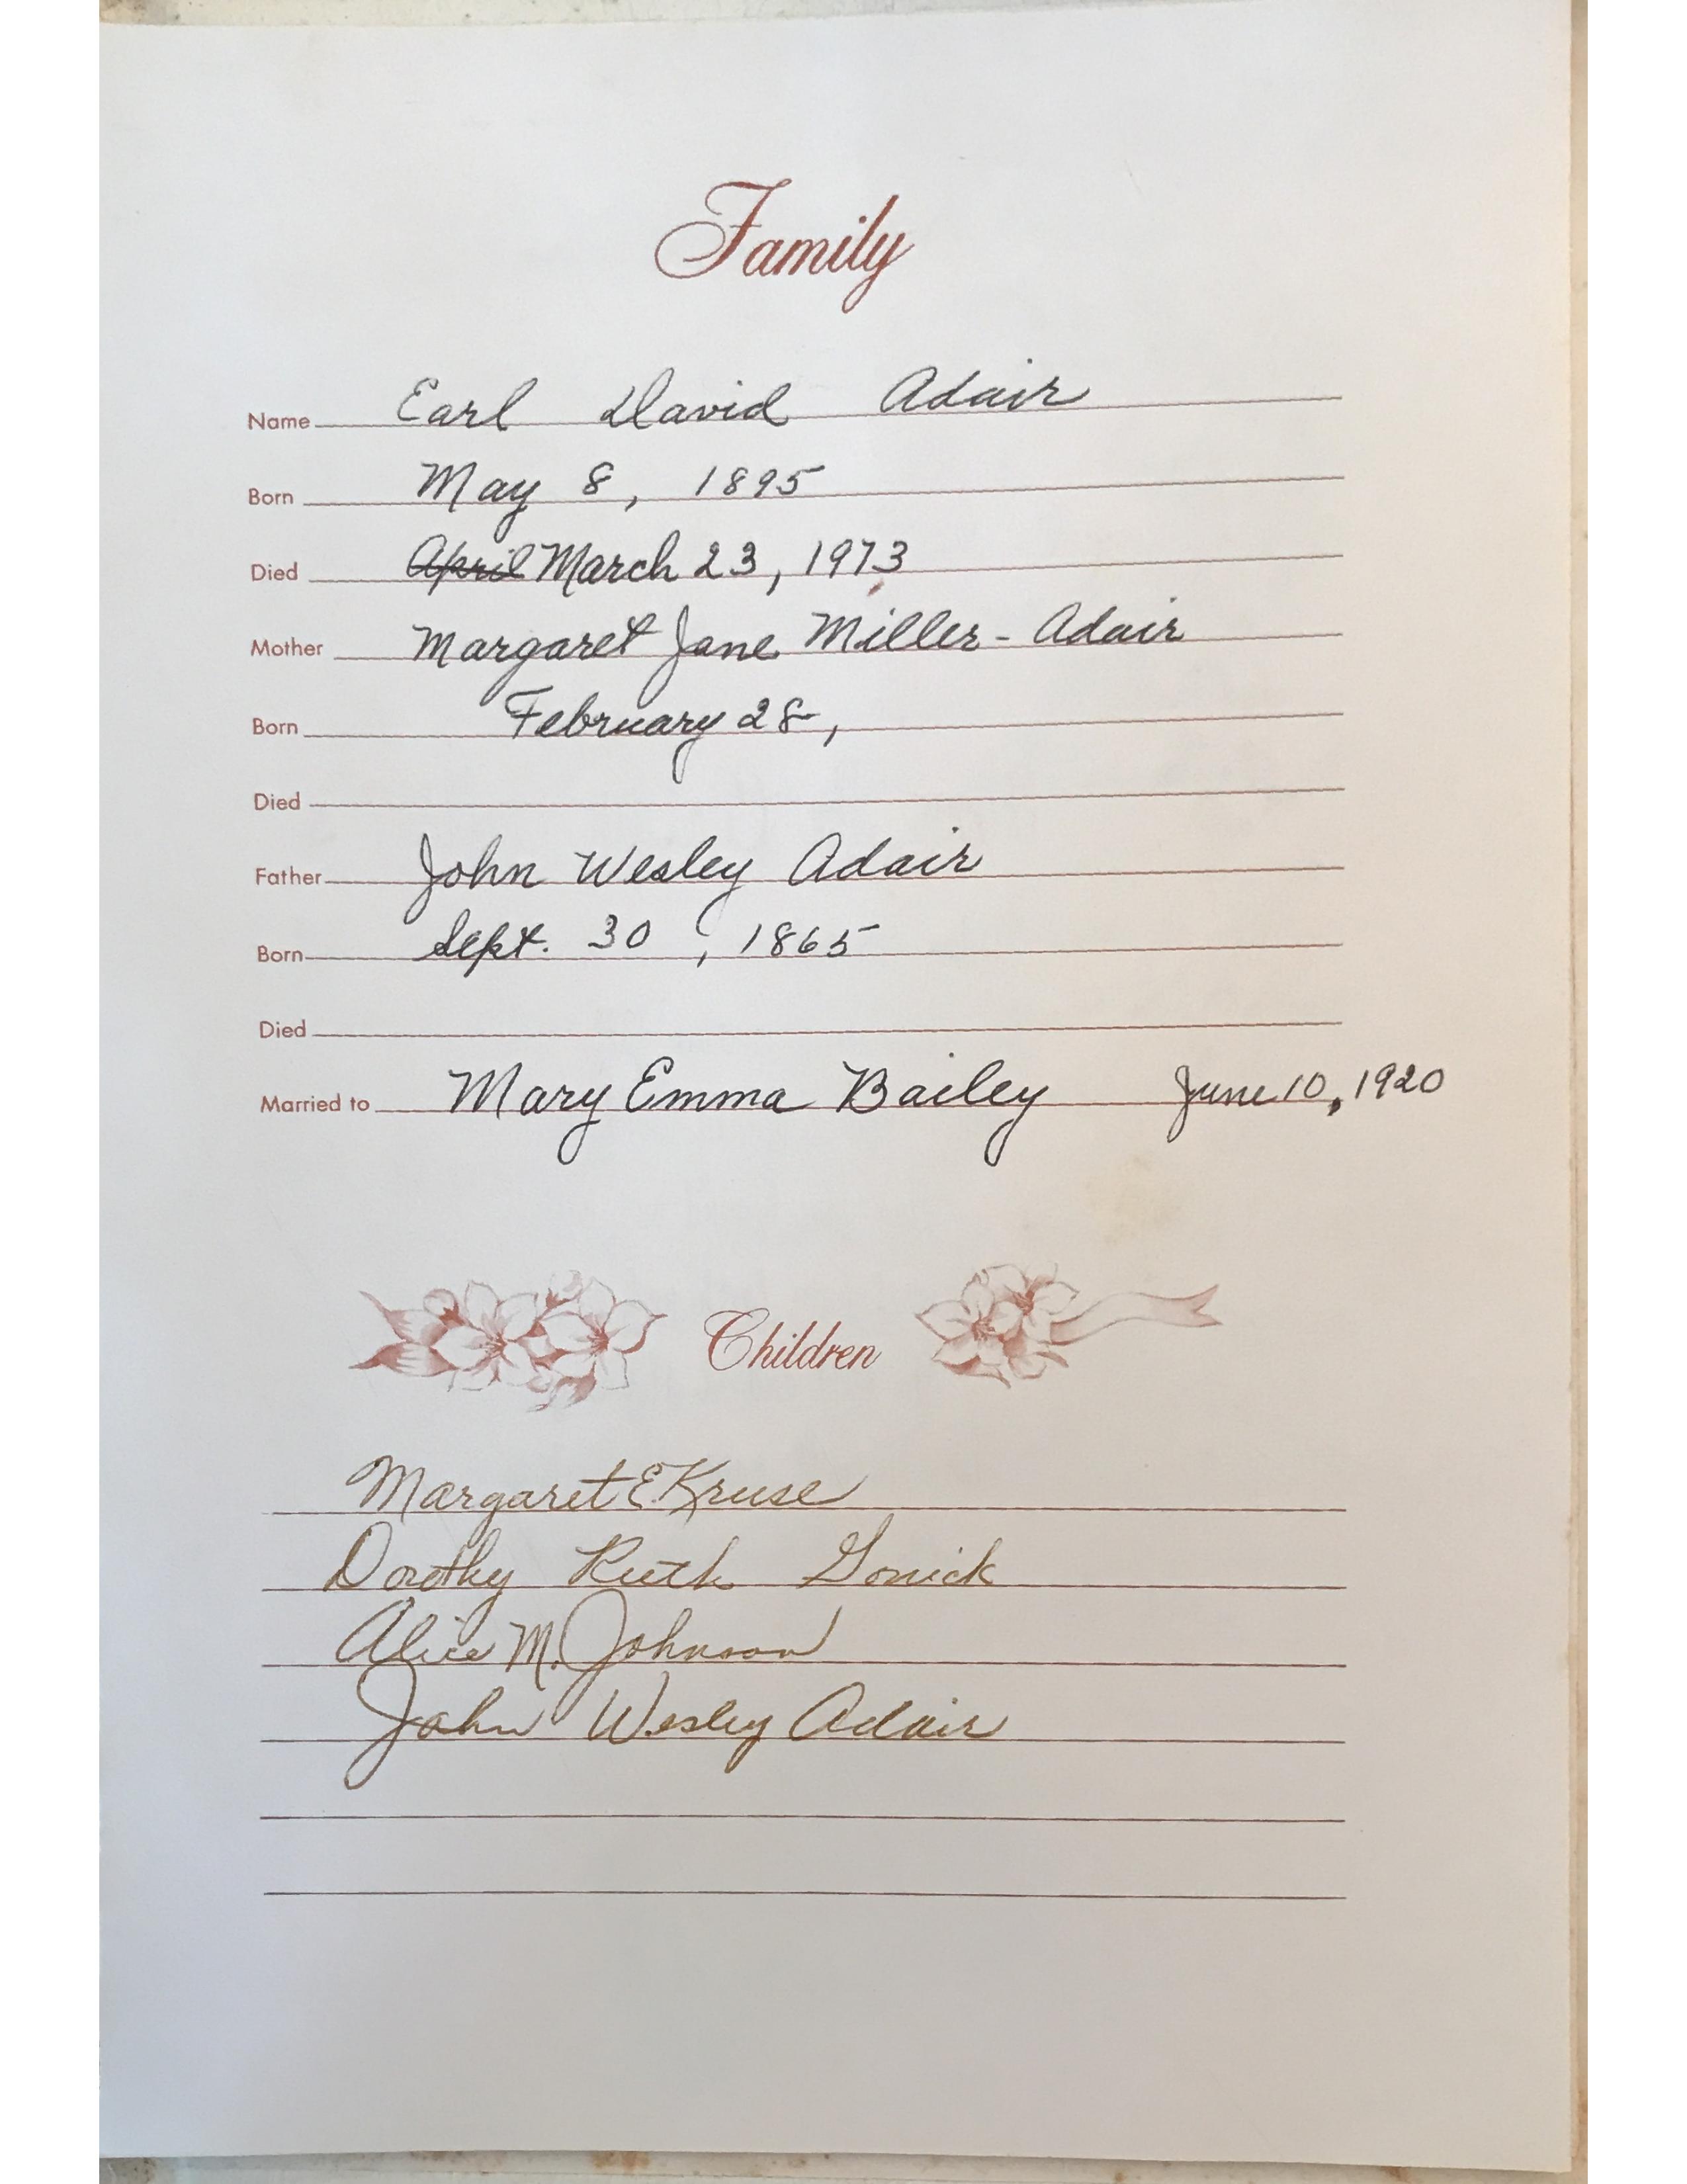 Family
Name Earl David Adair
Born May 8, 1895
Died April March 23, 1973
Mother Margaret Jane Miller - Adair
Born February 28,
Died
Father John Wesley Adair
Born Sept. 30, 1865
Died
Married to Mary Emma Bailey June 10, 1920
Children
Margaret E. Kruse
Dorothy Ruth Gonick
Alice M. Johnson
John Wesley Adair